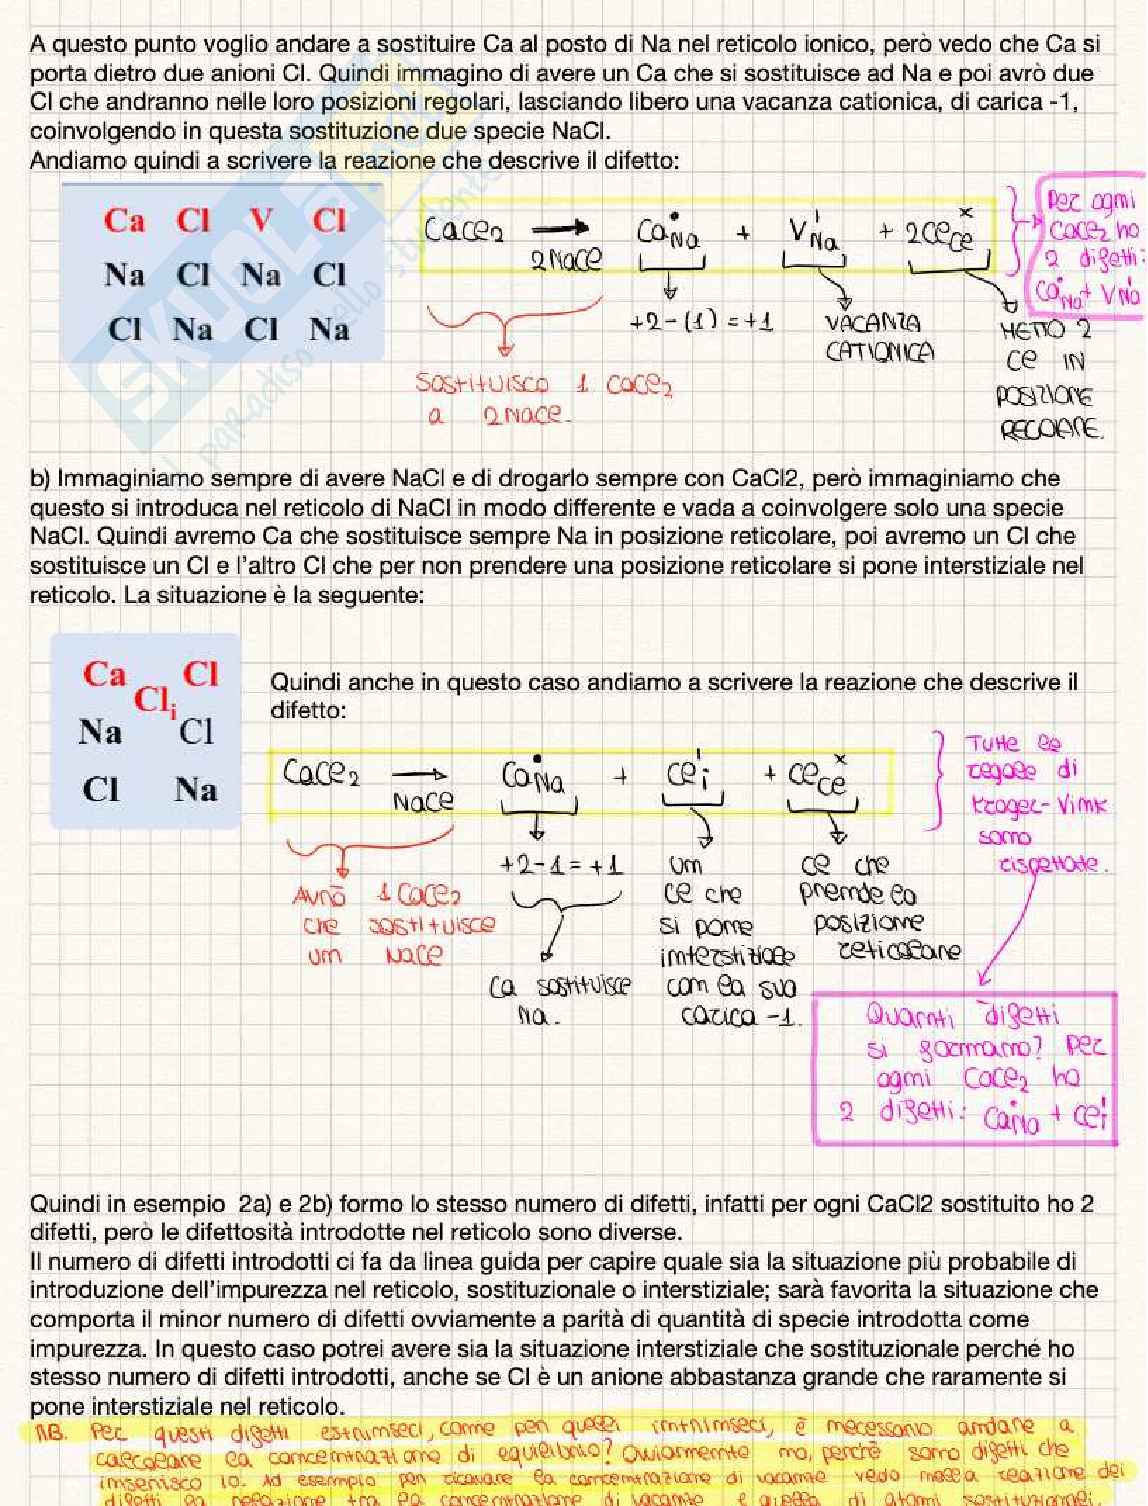 A questo punto voglio andare a sostituire Ca al posto di Na nel reticolo ionico, però vedo che Ca si
porta dietro due anioni Cl. Quindi immagino di avere un Ca che si sostituisce ad Na e poi avrò due
Cl che andranno nelle loro posizioni regolari, lasciando libero una vacanza cationica, di carica -1,
coinvolgendo in questa sostituzione due specie NaCl.
Andiamo quindi a scrivere la reazione che descrive il difetto:
Ca Cl V Cl
Na Cl Na Cl
Cl Na Cl Na
CaCl₂ → 2NaCl Ca•Na + V'Na + 2ClˣCl
Per ogni
CaCl₂ ho
2 difetti:
Ca•Na + V'Na
+2-(1)=+1
VACANZA
CATIONICA
METTO 2
Cl IN
POSIZIONE
REGOLARE.
Sostituisco 1 CaCl₂
a 2NaCl.
b) Immaginiamo sempre di avere NaCl e di drogarlo sempre con CaCl2, però immaginiamo che
questo si introduca nel reticolo di NaCl in modo differente e vada a coinvolgere solo una specie
NaCl. Quindi avremo Ca che sostituisce sempre Na in posizione reticolare, poi avremo un Cl che
sostituisce un Cl e l'altro Cl che per non prendere una posizione reticolare si pone interstiziale nel
reticolo. La situazione è la seguente:
Ca Cl
Cli
Na Cl
Cl Na
Quindi anche in questo caso andiamo a scrivere la reazione che descrive il
difetto:
CaCl₂ → NaCl Ca•Na + Cl'i + ClˣCl
Tutte le
regole di
Kroger-Vink
sono
rispettate.
+2-1=+1
Avrò 1 CaCl₂
che sostituisce
un NaCl
Ca sostituisce
Na.
un
Cl che
si pone
interstiziale
con la sua
carica -1.
Cl che
prende la
posizione
reticolare
Quanti difetti
si formano? Per
ogni CaCl₂ ho
2 difetti: Ca•Na + Cl'i
Quindi in esempio 2a) e 2b) formo lo stesso numero di difetti, infatti per ogni CaCl2 sostituito ho 2
difetti, però le difettosità introdotte nel reticolo sono diverse.
Il numero di difetti introdotti ci fa da linea guida per capire quale sia la situazione più probabile di
introduzione dell'impurezza nel reticolo, sostituzionale o interstiziale; sarà favorita la situazione che
comporta il minor numero di difetti ovviamente a parità di quantità di specie introdotta come
impurezza. In questo caso potrei avere sia la situazione interstiziale che sostituzionale perché ho
stesso numero di difetti introdotti, anche se Cl è un anione abbastanza grande che raramente si
pone interstiziale nel reticolo.
NB. Per questi difetti estrinseci, come per quelli intrinseci, è necessario andare a
calcolare la concentrazione di equilibrio? Ovviamente no, perchè sono difetti che
inserisco io. Ad esempio per ricavare la concentrazione di vacanze vedo nella reazione dei
difetti la relazione tra la concentrazione di vacanze e quella di atomi sostituzionali.